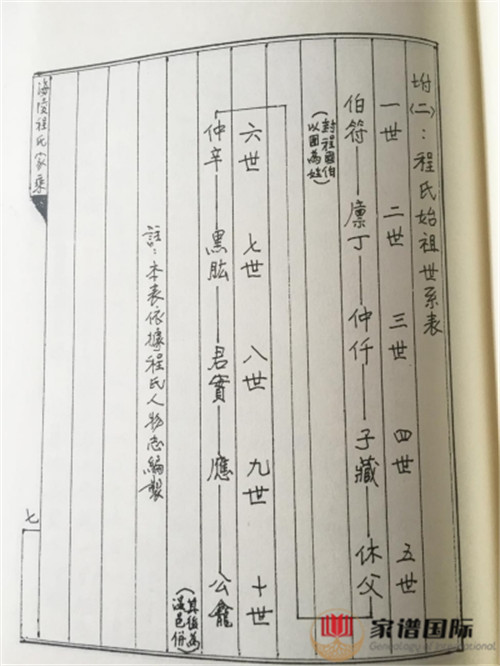 坿(二)：程氏始祖世系表
一世 二世 三世 四世 五世
伯符 廩丁 仲仟 子藏 休父
(封程國伯
以国為姓)
六世 七世 八世 九世 十世
仲辛 黑肱 君實 應 公龕
(其後為
温邑侯)
註：本表依據程氏人物志編製
海陵程氏家乘
七
家谱国际
Genealogy of International